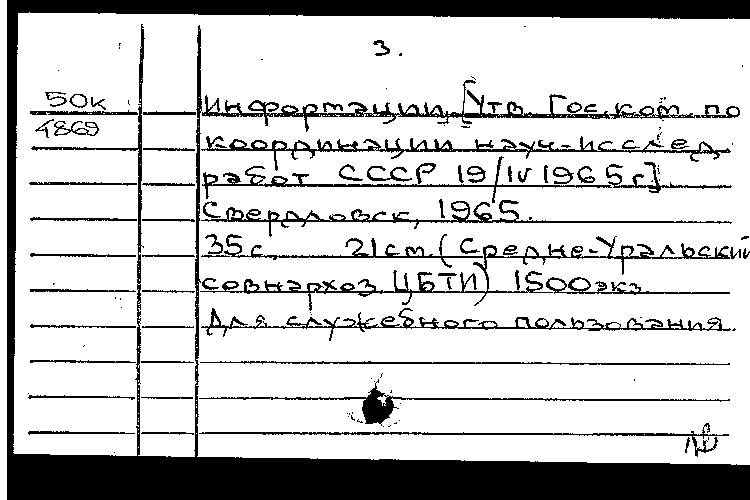 3.
50к
4869
информации. [Утв. Гос. ком. по
координации науч-исслед.
работ СССР 19/IV 1965 г]
Свердловск, 1965.
35 с. 21 ст. (Средне-Уральский
совнархоз. ЦБТИ) 1500 экз.
Для служебного пользования.